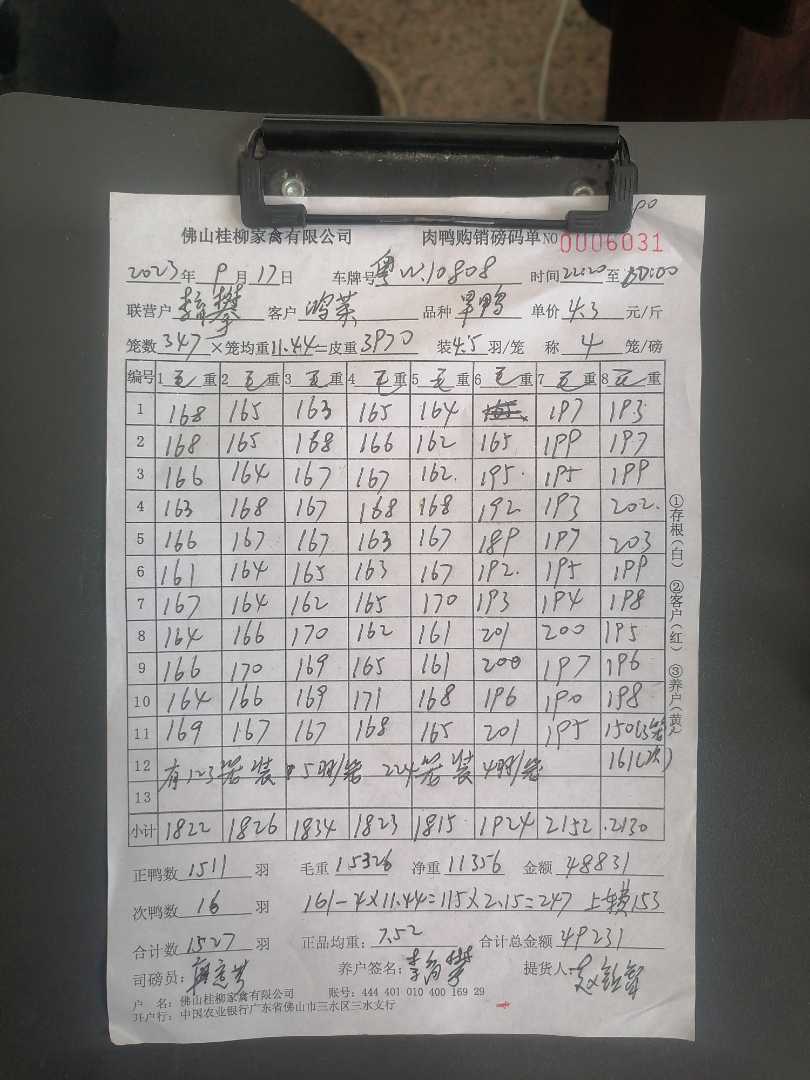 佛山桂柳家禽有限公司 肉鸭购销磅码单 NO 0006031
2023年 9月17日 车牌号 粤W.10808 时间 22:20 至 00:00
联营户 攀 客户 鸿英 品种 旱鸭 单价 4.3 元/斤
笼数 347 ×笼均重 11.44 =皮重 3970 装 4.5 羽/笼 称 4 笼/磅
编号 1 毛 重 2 毛 重 3 毛 重 4 毛 重 5 毛 重 6 毛 重 7 毛 重 8 毛 重
1 168 165 163 165 164 197 193
2 168 165 168 166 162 165 199 197
3 166 164 167 167 162. 195. 195 199
4 163 168 167 168 168 192 193 202.
5 166 167 167 163 167 189 197 203
6 161 164 165 163 167 192. 195 199
7 167 164 162 165 170 193 194 198
8 164 166 170 162 161 201 200 195
9 166 170 169 165 161 200 197 196
10 164 166 169 171 168 196 190 198
11 169 167 167 168 165 201 195 150(3笼)
12 有123笼装5羽/笼 224笼装4羽/笼 161(次)
13
小计 1822 1826 1834 1823 1815 1924 2152 2130
①存根(白) ②客户(红) ③养户(黄)
正鸭数 1511 羽 毛重 15326 净重 11356 金额 48831
次鸭数 16 羽 161-4×11.44=115×2.15=247 上 153
合计数 1527 羽 正品均重: 7.52 合计总金额 49231
司磅员: 养户签名: 攀 提货人:
户 名: 佛山桂柳家禽有限公司 账号: 444 401 010 400 169 29
开户行: 中国农业银行广东省佛山市三水区三水支行